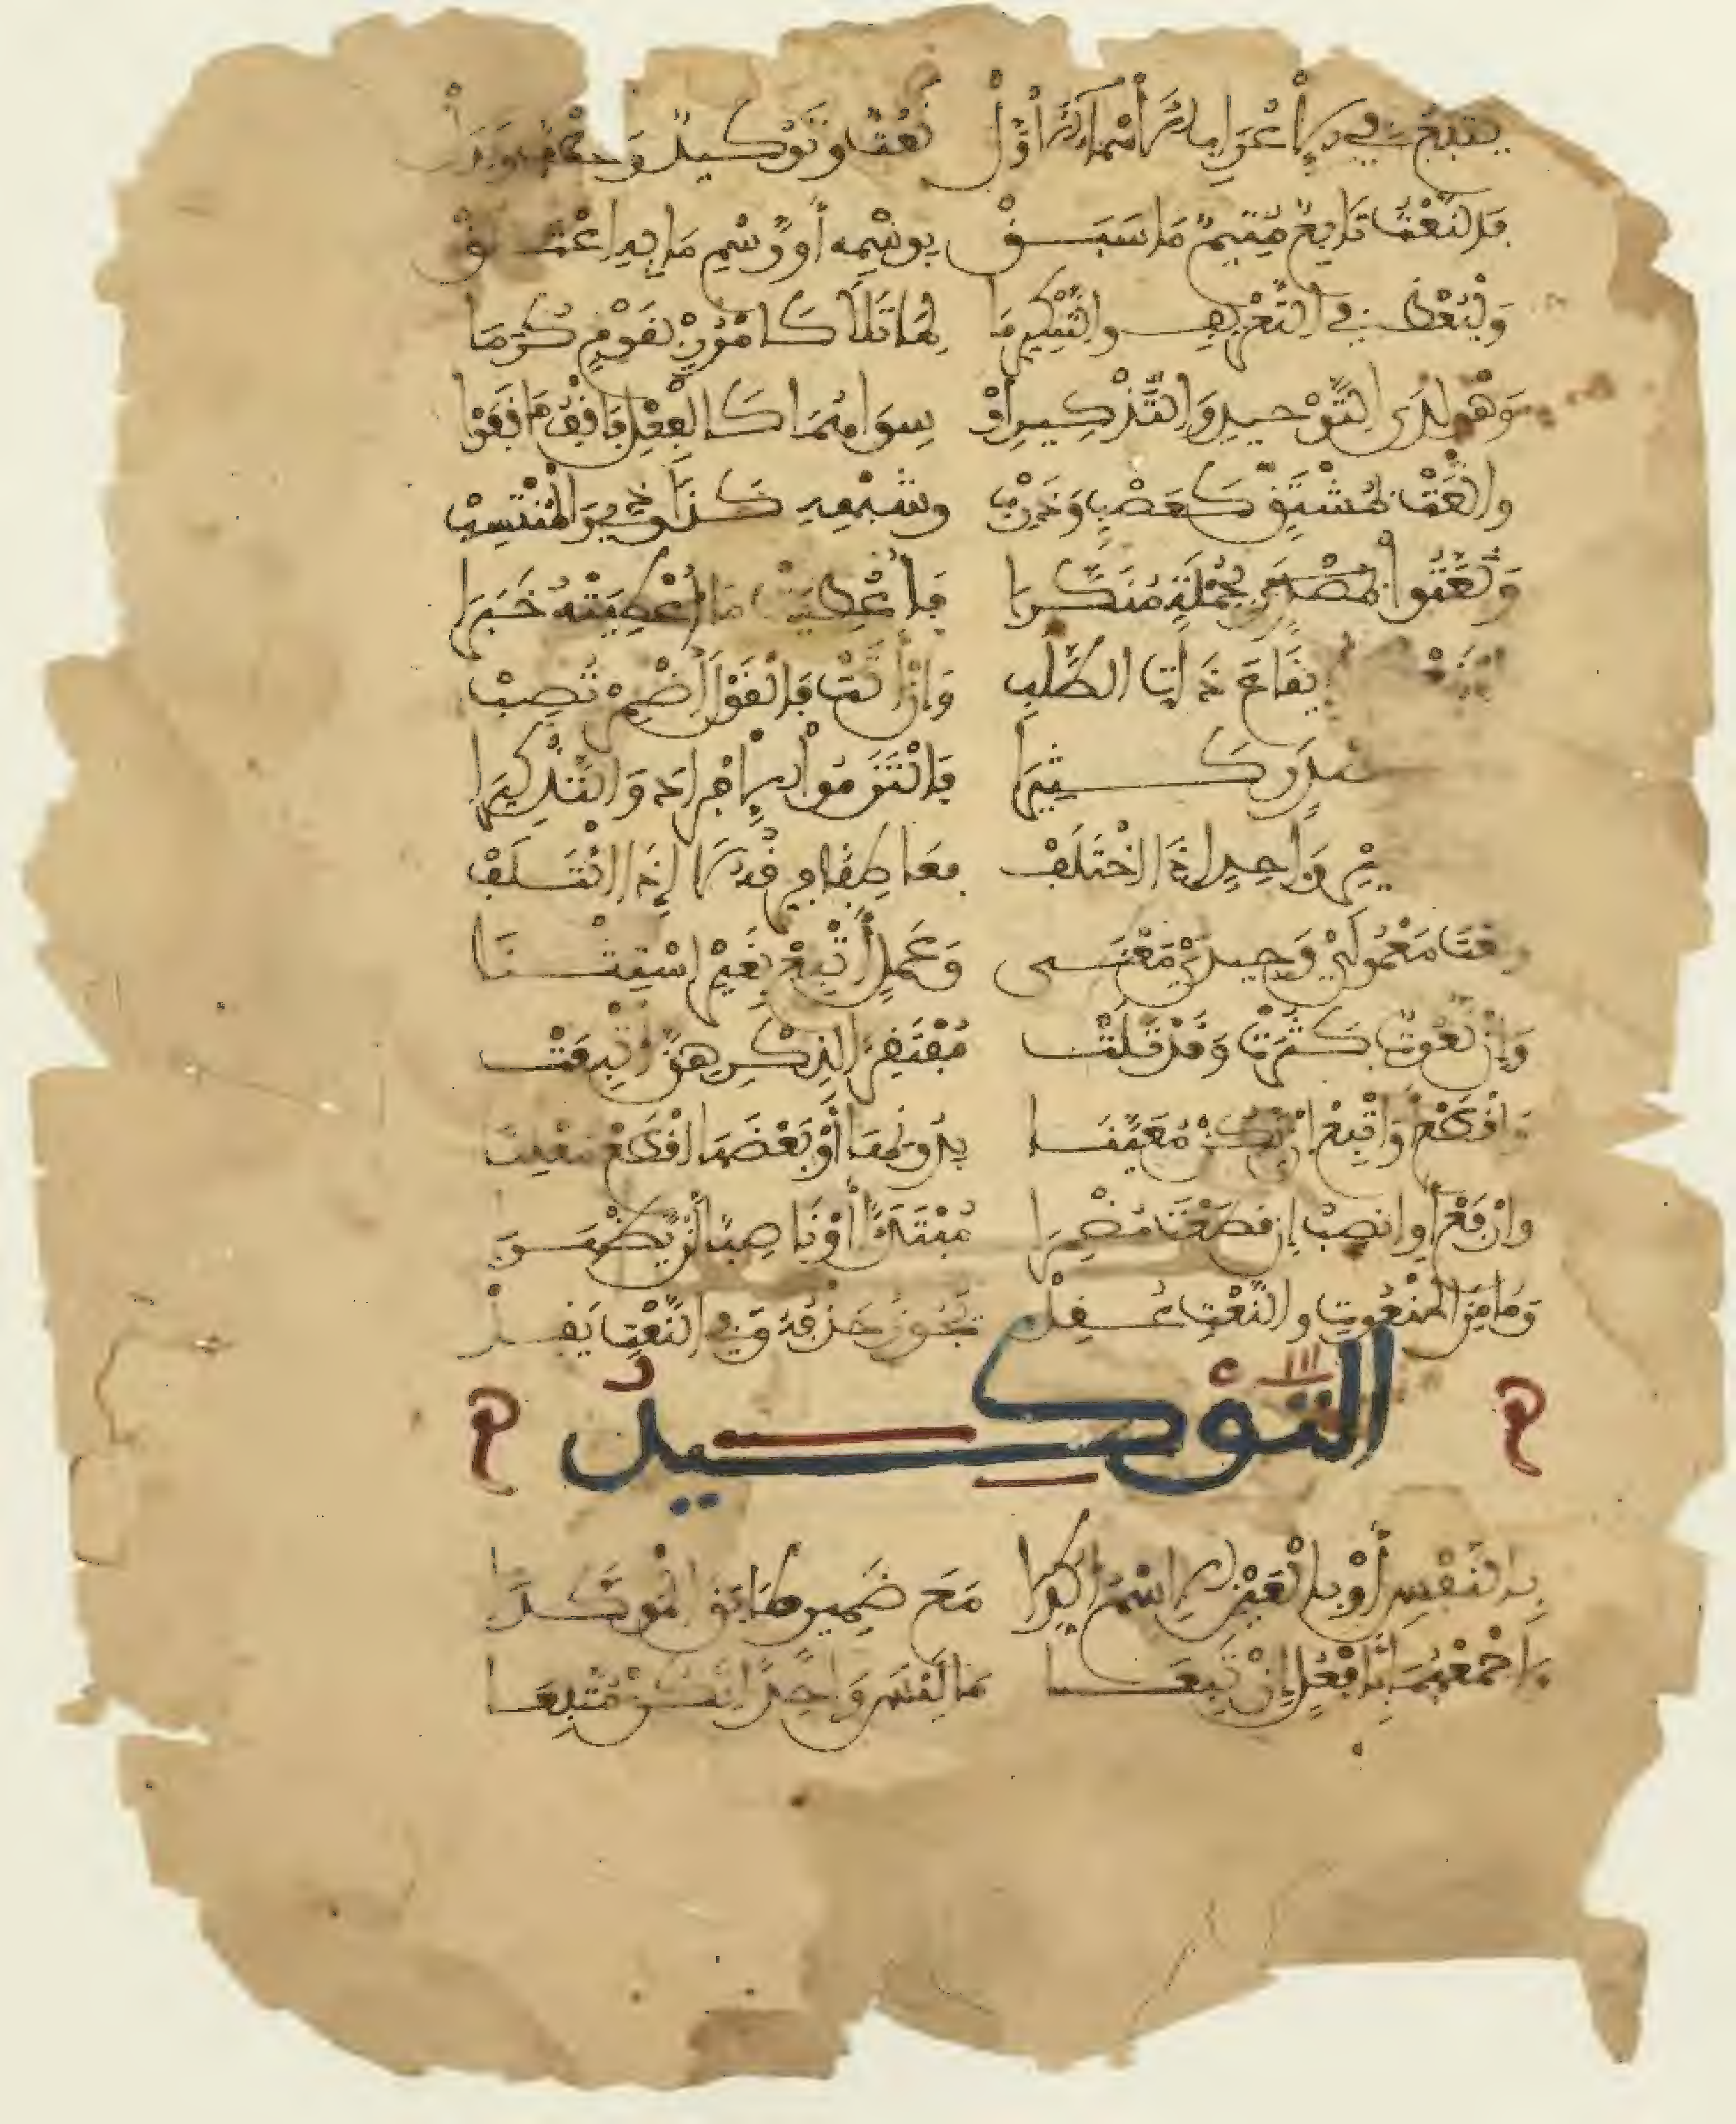 يتبع في الإعراب الأسماء الأول نعت وتوكيد وعطف وبدل
فالنعت تابع متم ما سبق بوسمه أو وسم ما به اعتلق
وليعط في التعريف والتنكير ما لما تلا كامرر بقوم كرما
وهو لدى التوحيد والتذكير أو سواهما كالفعل فاقف ما قفوا
وانعت بمشتق كصعب وذرب وشبهه كذا وذي والمنتسب
ونعتوا بجملة منكرا فأعطيت ما أعطيته خبرا
إيقاع ذات الطلب وإن أتت فالقول أضمر تصب
بمصدر كثيرا فالتزموا الإفراد والتذكيرا
غير واحد إذا اختلف فعاطفا فرقه لا إذا ائتلف
ونعت معمولي وحيدي معنى وعمل أتبع بغير استثنا
وإن نعوت كثرت وقد تلت مفتقرا لذكرهن أتبعت
واقطع أو اتبع إن يكن معينا بدونها أو بعضها اقطع معلنا
وارفع أو انصب إن قطعت مضمرا مبتدأ أو ناصبا لن يظهرا
وما من المنعوت والنعت عقل يجوز حذفه وفي النعت يقل
التوكيد
بالنفس أو بالعين الاسم أكدا مع ضمير طابق المؤكدا
واجمعهما بأفعل إن تبعا ما ليس واحدا تكن متبعا